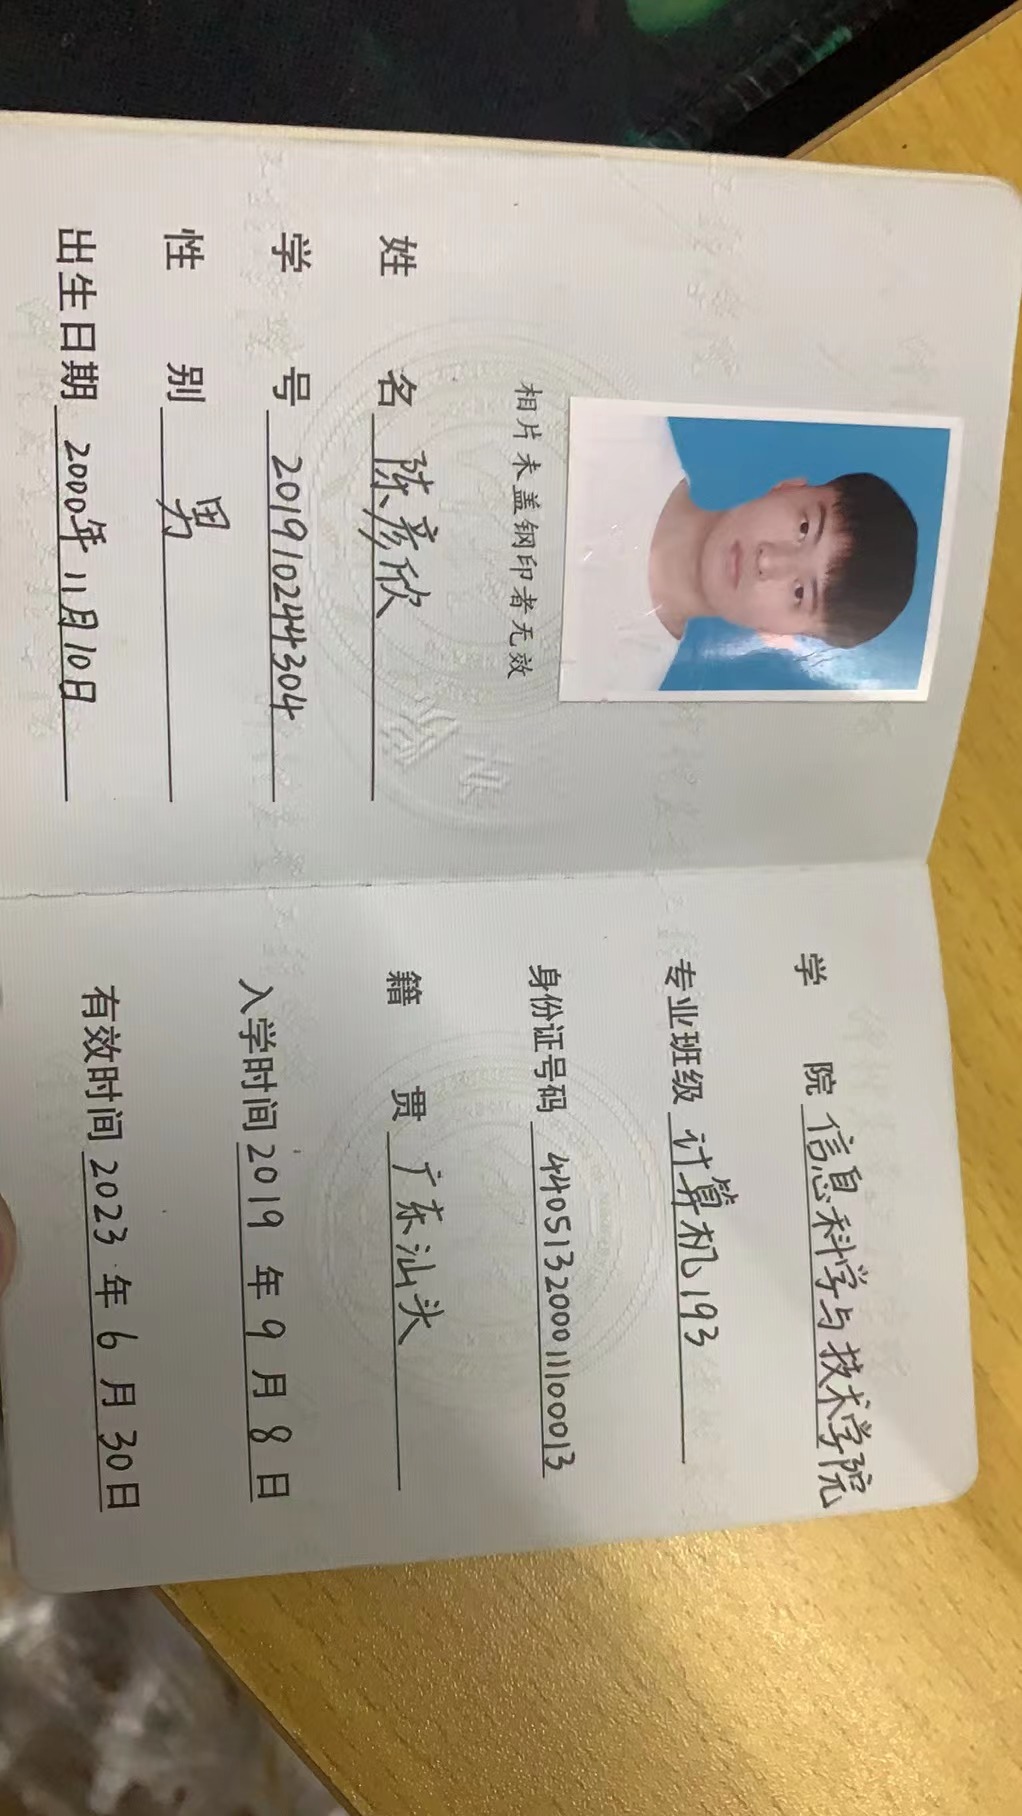 相片未盖钢印者无效
姓 名 陈彦欣
学 号 201910244304
性 别 男
出生日期 2000年11月10日
学 院 信息科学与技术学院
专业班级 计算机193
身份证号码 440513200011100013
籍 贯 广东汕头
入学时间 2019 年 9 月 8 日
有效时间 2023 年 6 月 30 日